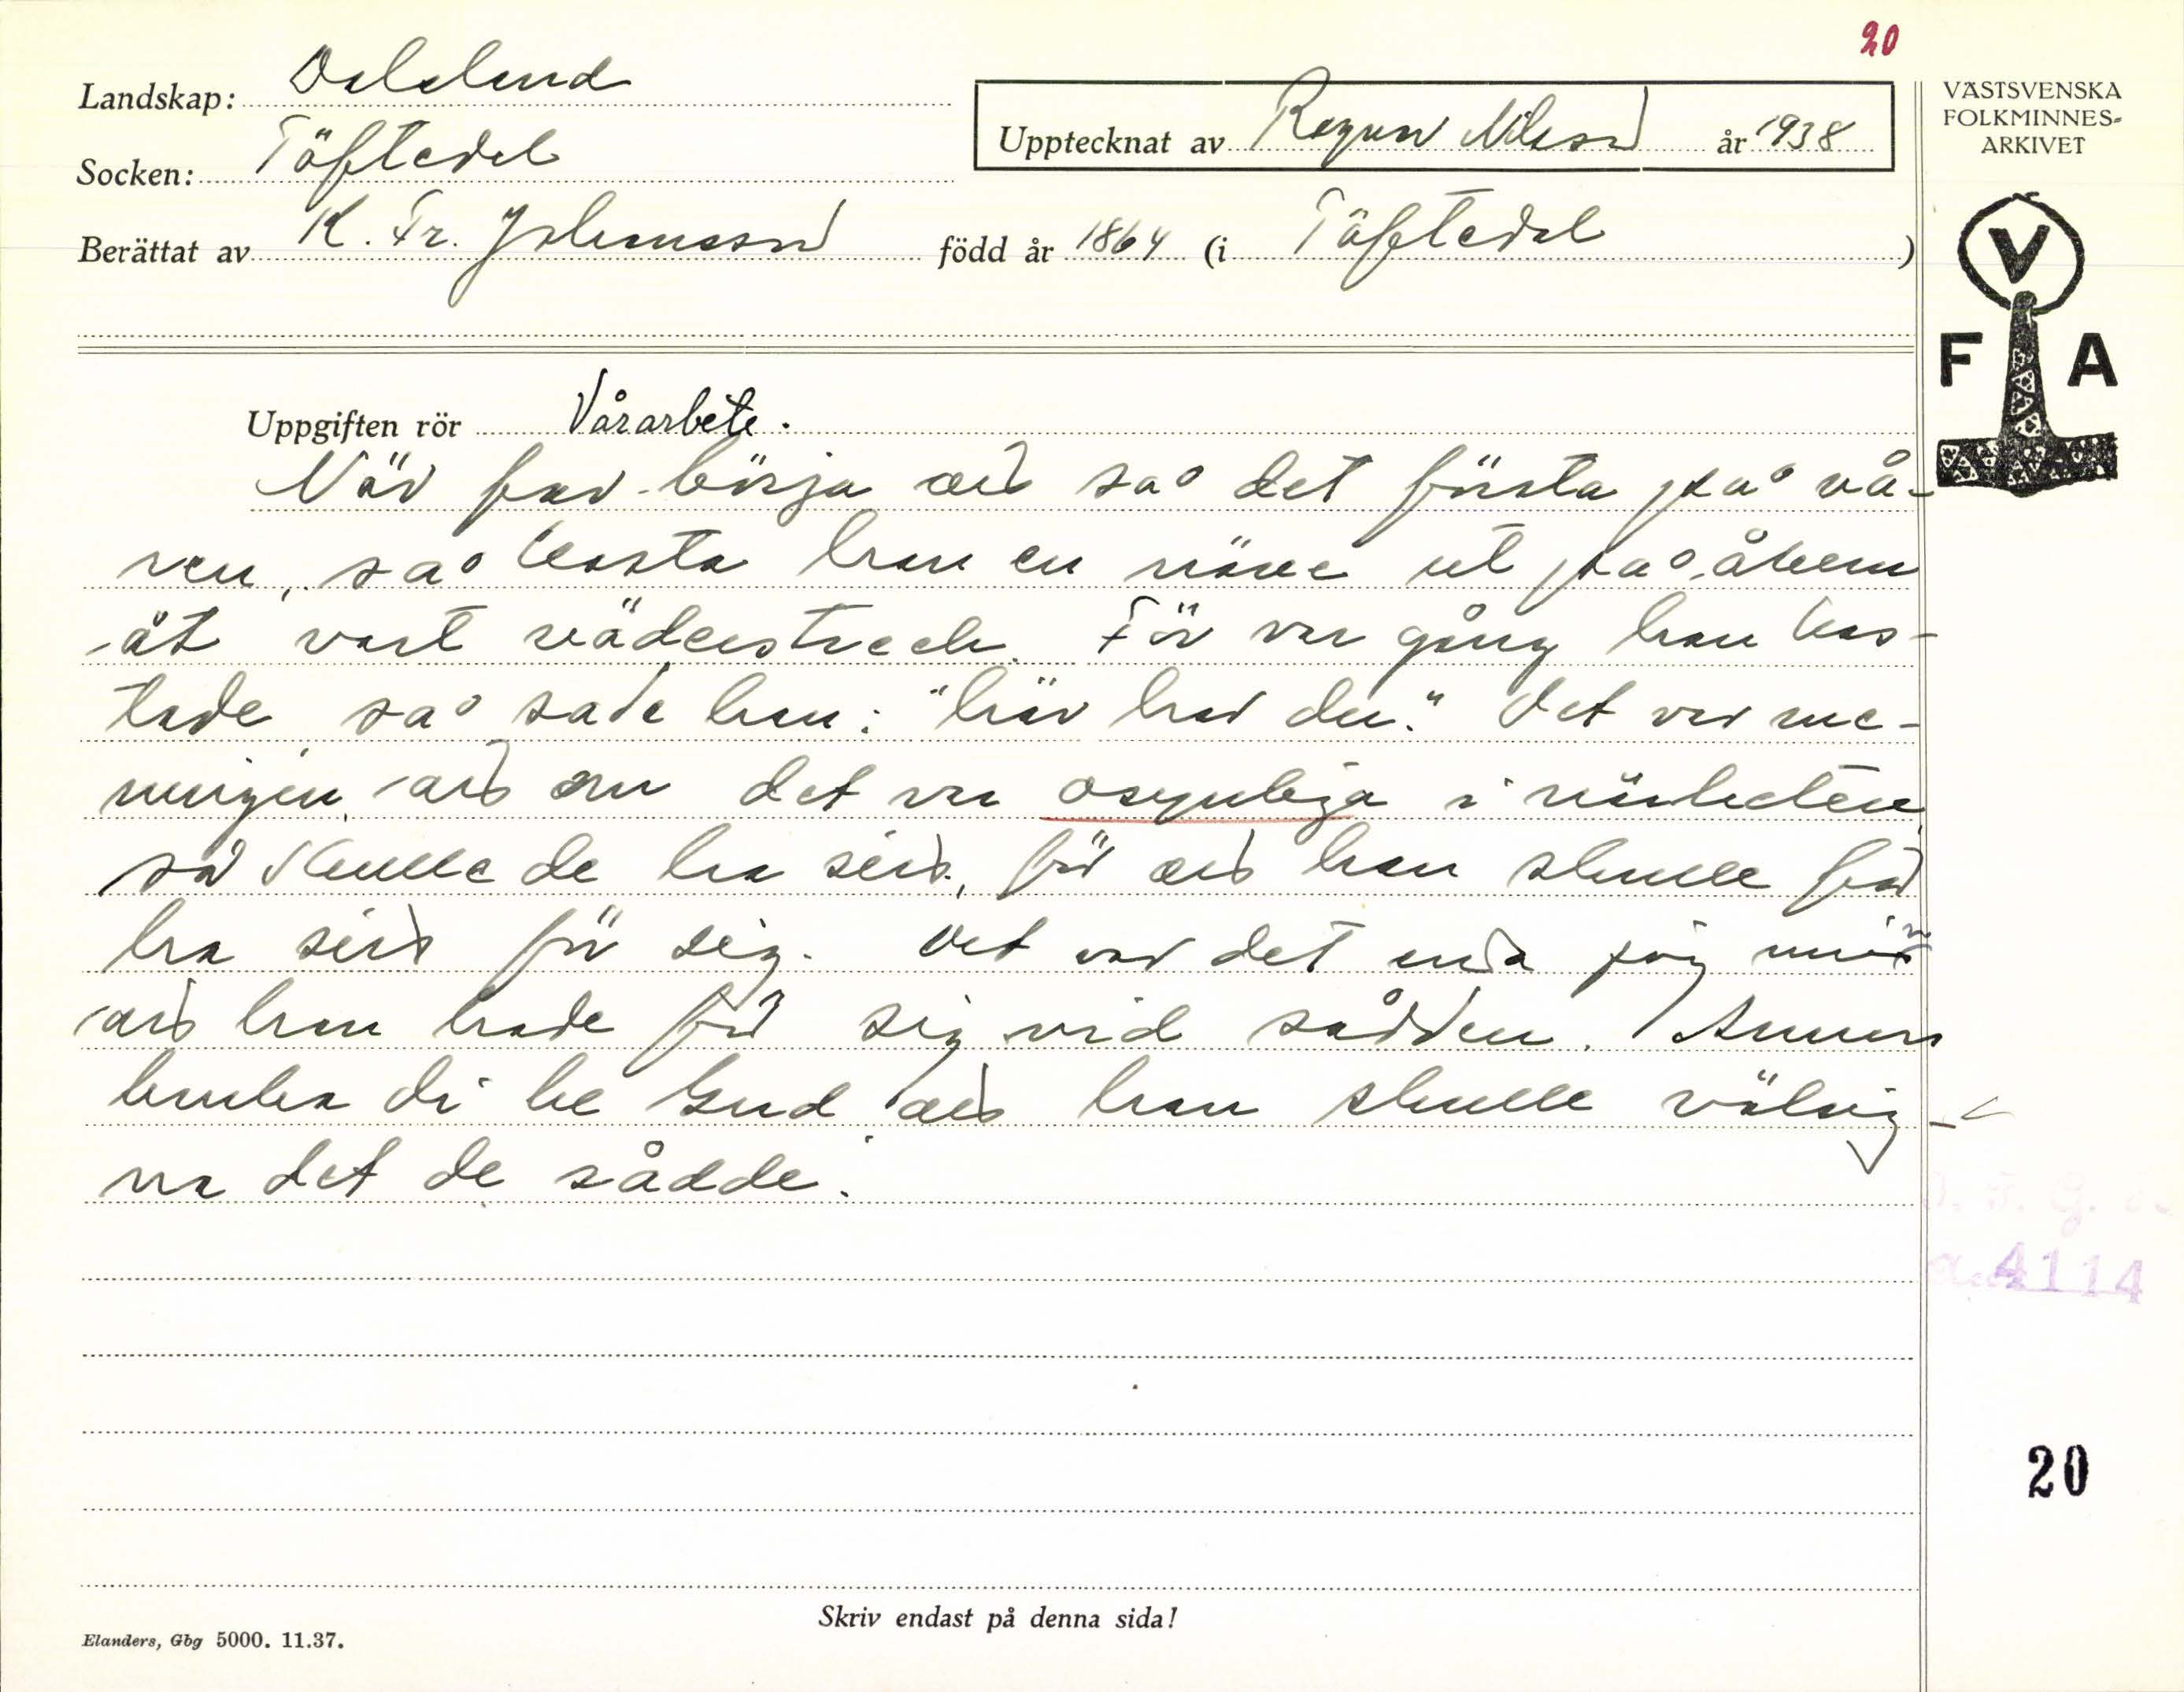 20
Landskap: Dalsland
Socken: Töftedal
Upptecknat av Ragnar Nilsson år 1938
Berättat av K. Fr. Johansson född år 1864 (i Töftedal)
VÄSTSVENSKA
FOLKMINNES-
ARKIVET
V
F A
Uppgiften rör Vårarbete.
När far börja att så det första på vå-
ren, så kasta han en näve ut på åkern
åt vart väderstreck. För var gång han kas-
tade så sade han: "här har du." Det var me-
ningen, att om det var osynliga i närheten,
så skulle de ha sitt, för att han skulle få
ha sitt för sig. Det var det enda jag minns
att han hade för sig vid sådden. Annars
bruka di be Gud att han skulle välsig-
na det de sådde.
4114
20
Skriv endast på denna sida!
Elanders, Gbg 5000. 11.37.